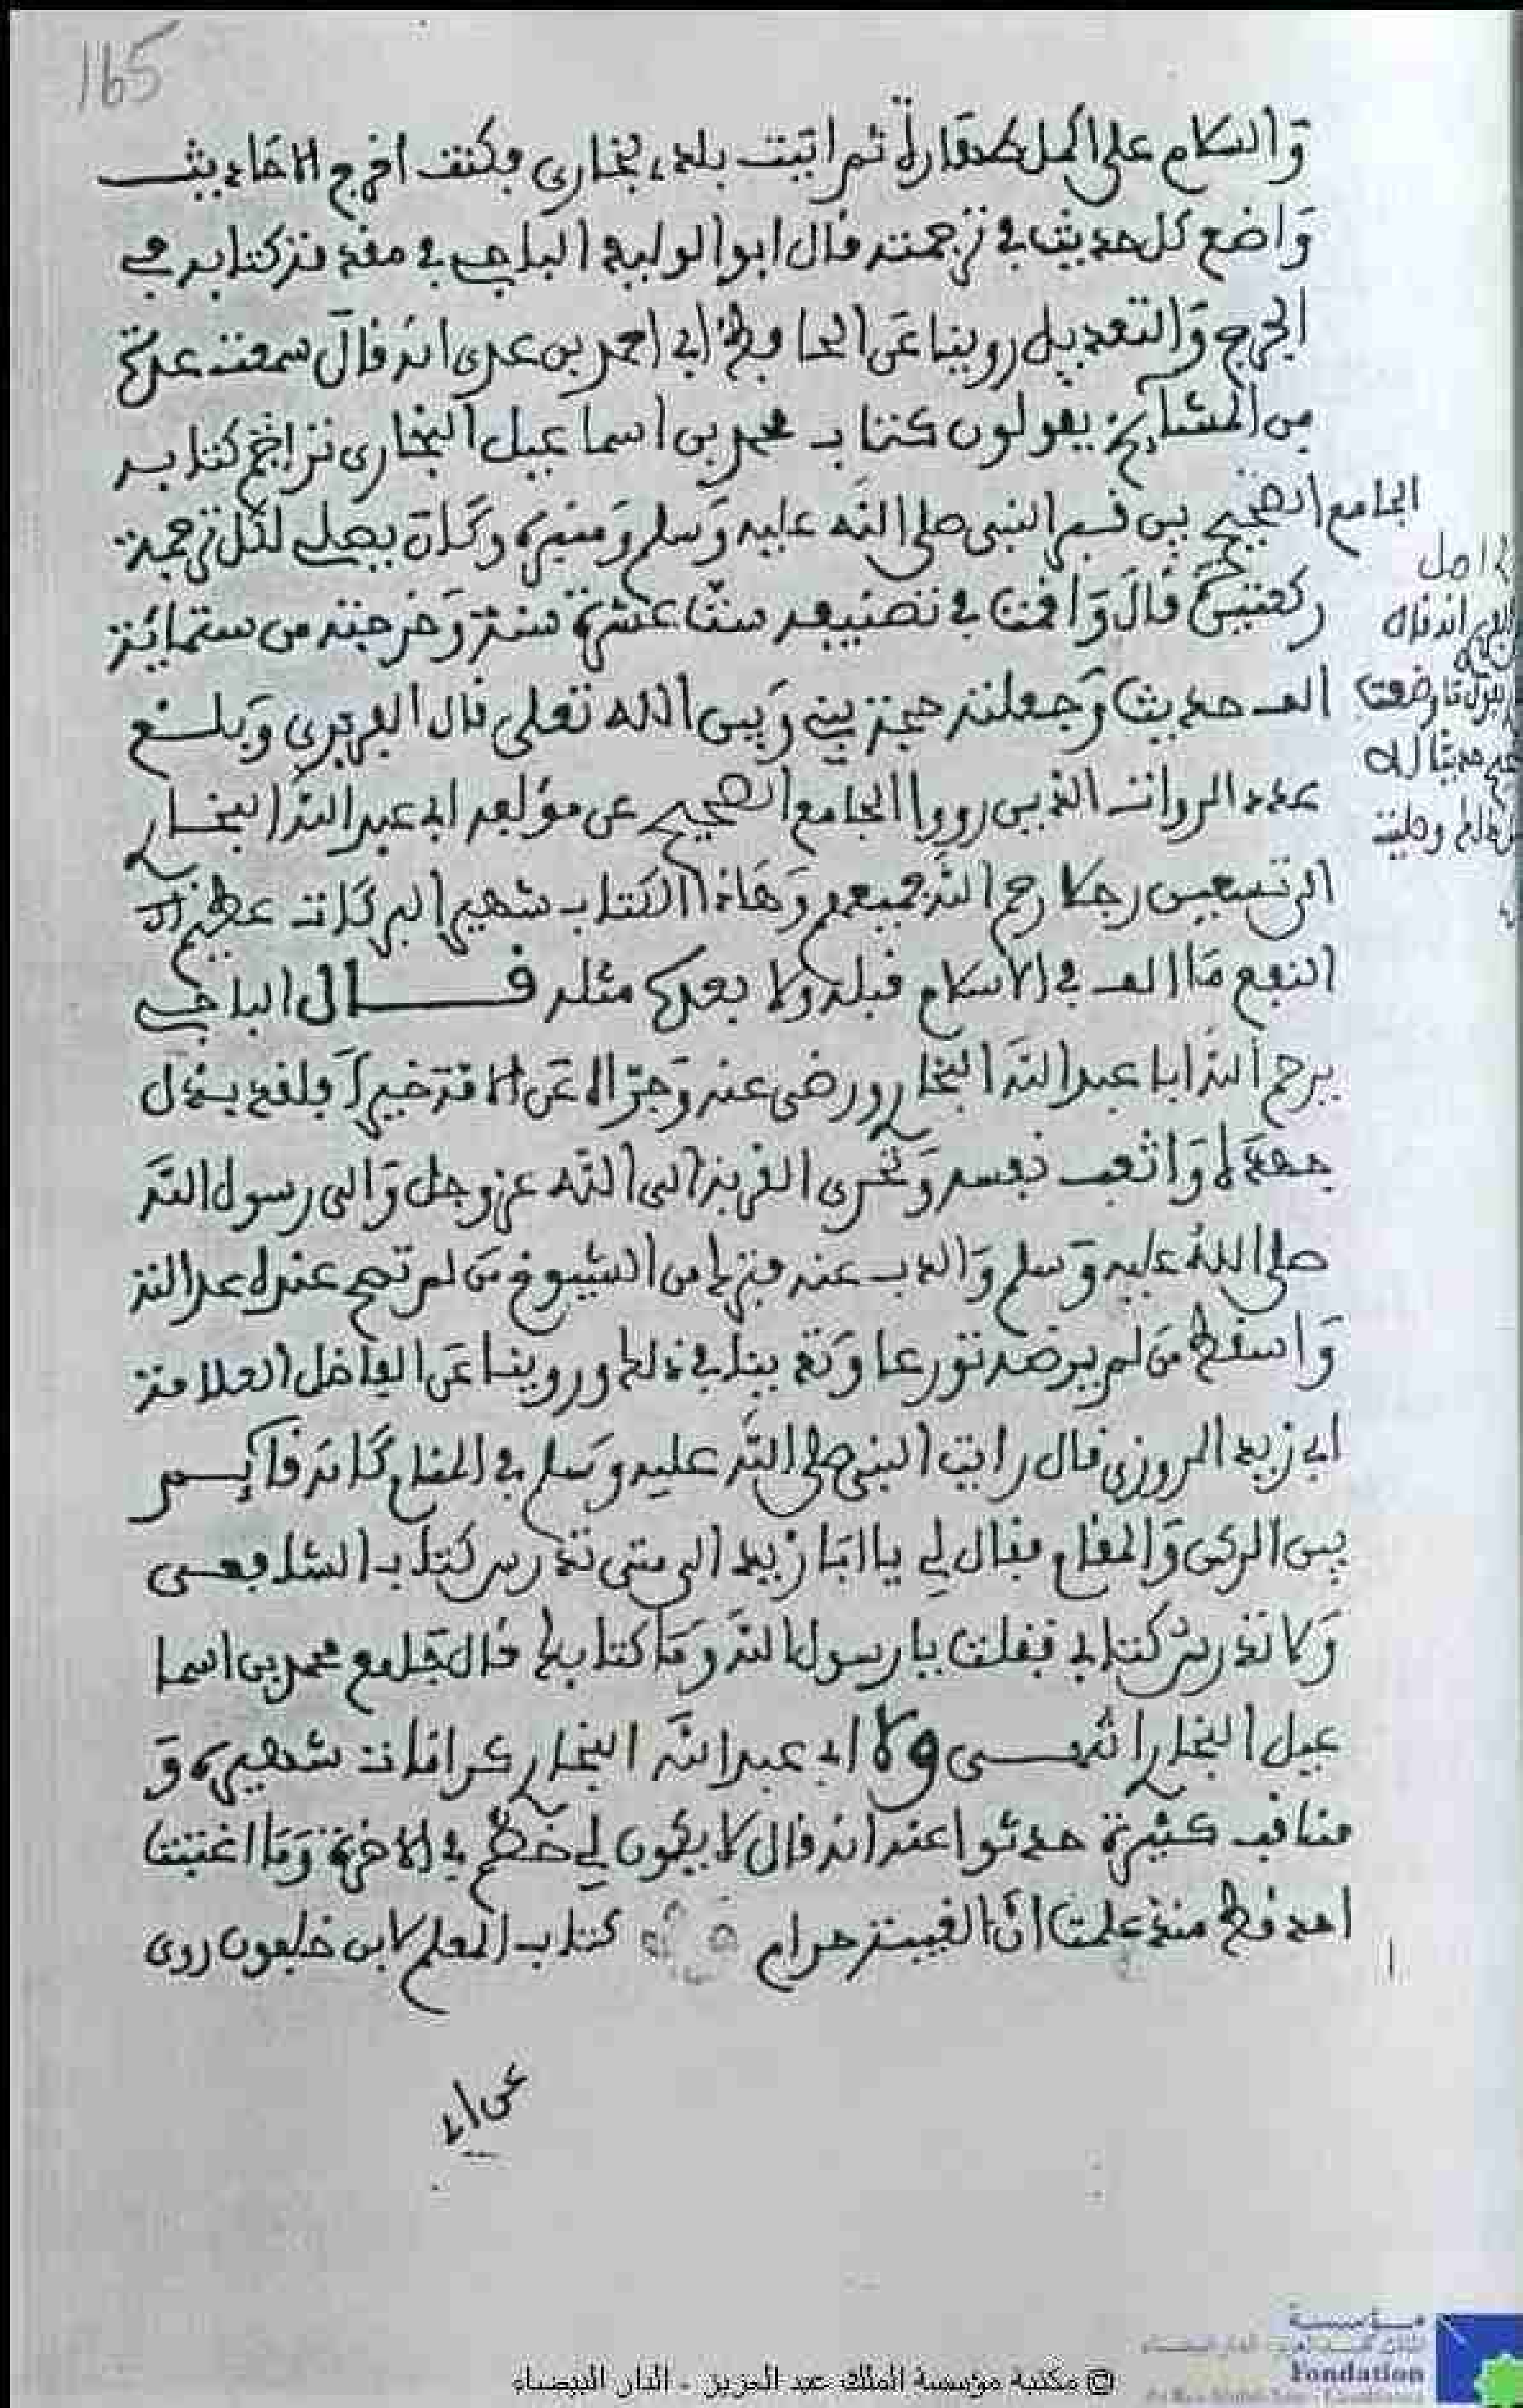 165
والسلام على أكمل طهارة ثم اتيت بلد بخارى فكنت اخرج الاحاديث
واضع كل حديث في ترجمته قال ابو الوليد الباجي في مقدمة كتابه في
الجرح والتعديل روينا عن الحافظ ابي احمد بن عدي انه قال سمعت عدة
من المشايخ يقولون كتاب محمد بن اسماعيل البخاري تراجم كتابه
الجامع الصحيح بين قبر النبي صلى الله عليه وسلم ومنبره وكان يصلي لكل ترجمة
ركعتين قال واقمت في تصنيفه ست عشرة سنة وخرجته من ستمائة
الف حديث وجعلته حجة بيني وبين الله تعلى قال الفربري وبلغ
عدد الروات الذين رووا الجامع الصحيح عن مؤلفه ابي عبد الله البخاري
الى تسعين رجلا رحم الله جميعهم وهاذا الكتاب شهير البركات عظيم
النفع ما الف في الاسلام قبله ولا بعده مثله قال الباجي
يرحم الله ابا عبد الله البخاري ورضي عنه وجزاه عن الامة خيرا فلقد بذل
جهده واتعب نفسه وتحرى القربة الى الله عز وجل والى رسول الله
صلى الله عليه وسلم والذب عنه فترك من الشيوخ من لم تصح عنده عدالته
واسقط من لم يرضه تورعا وتدينا في ذلك وروينا عن الفاضل العلامة
ابي زيد المروزي قال رايت النبي صلى الله عليه وسلم في المنام كانه قايم
بين الركن والمقام فقال لي يا ابا زيد الى متى تدرس كتاب الشافعي
ولا تدرس كتابي فقلت يا رسول الله وما كتابك قال جامع محمد بن اسما
عيل البخاري انتهى ولابي عبد الله البخاري كرامات شهيرة و
مناقب كثيرة حدثوا عنه انه قال لا يكون لي خصم في الاخرة وما اغتبت
احد قط منذ علمت ان الغيبة حرام كتاب المعلم لابن خلفون روى
عن ابي
اصل
انه قال
ما وضعت
حديثا له
وصليت
© مكتبة مؤسسة الملك عبد العزيز - الدار البيضاء
مؤسسة
Fondation